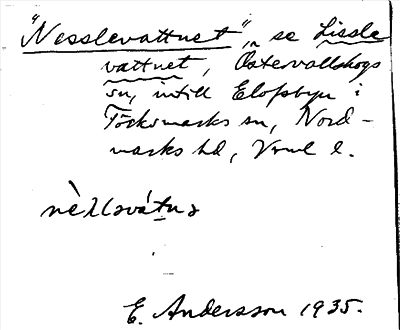 "Nesslevattnet", se Lissle
vattnet, Östervallskogs
sn, intill Elofsbyn i
Töcksmarks sn, Nord-
marks hd, Vrml l.
E. Andersson 1935.